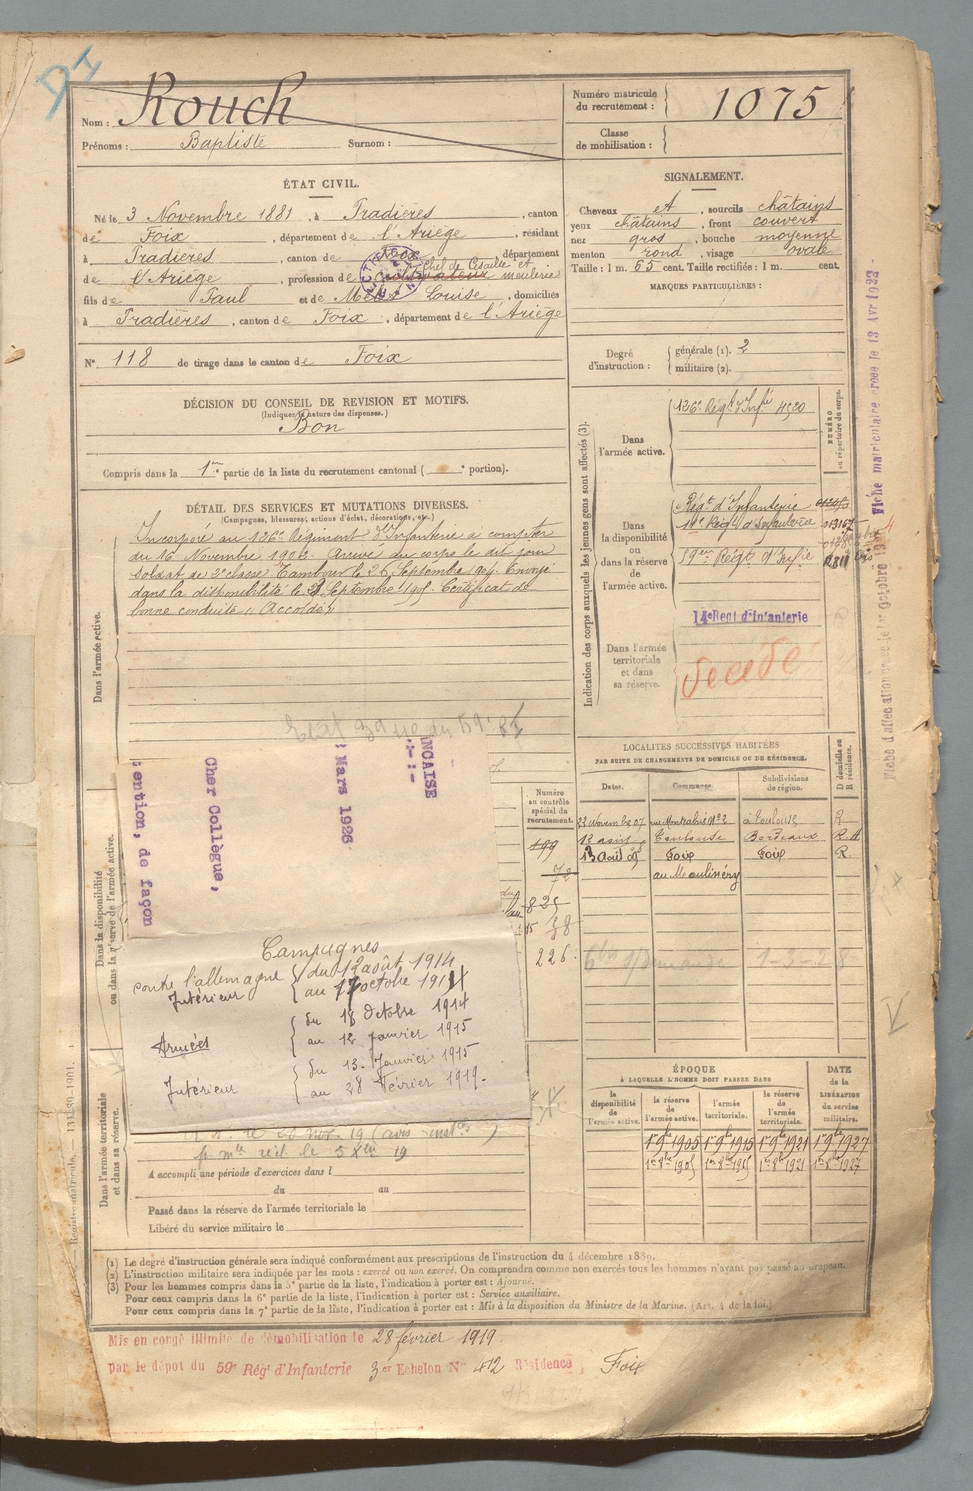 Nom : Rouch
Prénoms : Baptiste Surnom :
Numéro matricule du recrutement : 1075
Classe de mobilisation :
ÉTAT CIVIL.
Né le 3 Novembre 1881, à Pradières, canton
de Foix, département de l'Ariège, résidant
à Pradières, canton de Foix, département
de l'Ariège, profession de Cultivateur Chef de Cisaille et meulerie
fils de Paul et de Louise, domiciliés
à Pradières, canton de Foix, département de l'Ariège
N° 118 de tirage dans le canton de Foix
DÉCISION DU CONSEIL DE REVISION ET MOTIFS.
(Indiquer la nature des dispenses.)
Bon
Compris dans la 1re partie de la liste du recrutement cantonal ( e portion).
SIGNALEMENT.
Cheveux et, sourcils châtains
yeux châtains, front couvert
nez gros, bouche moyenne
menton rond, visage ovale
Taille : 1 m. 65 cent. Taille rectifiée : 1 m. cent.
MARQUES PARTICULIÈRES :
Degré d'instruction : générale (1). 2
militaire (2).
DÉTAIL DES SERVICES ET MUTATIONS DIVERSES.
(Campagnes, blessures, actions d'éclat, décorations, etc.)
Dans l'armée active.
Incorporé au 126e Régiment d'Infanterie à compter
du 16 Novembre 1902. Arrivé au corps le dit jour
soldat de 2e classe. Tambour le 26 Septembre 1904. Envoyé
dans la disponibilité le Septembre 1905. Certificat de
bonne conduite " Accordé "
Indication des corps auxquels les jeunes gens sont affectés (3).
NUMÉRO au répertoire du corps.
Dans l'armée active.
126e Régt d'Infie 4520
Dans la disponibilité ou dans la réserve de l'armée active.
Régt d'Infanterie
14e Régt d'Infanterie 013167
Régt d'Infie
Dans l'armée territoriale et dans sa réserve.
14e Regt d'Infanterie
Décédé
Fiche matriculaire créée le 13 Avr 1922
LOCALITES SUCCESSIVES HABITÉES
PAR SUITE DE CHANGEMENTS DE DOMICILE OU DE RÉSIDENCE.
Dates. Communes. Subdivisions de région. D domicile ou R résidence.
23 Novem bre 07 rue Montabié N° 2 à Toulouse R
Toulouse Bordeaux R
13 Août 09 Foix Foix R.
au Moulinéry
Dans la disponibilité ou dans la réserve de l'armée active.
Numéro au contrôle spécial du recrutement.
199
72
226
NCAISE
Mars 1926
Cher Collègue,
ention, de façon
Campagnes
contre l'allemagne
Intérieur du 12 août 1914
au 17 octobre 1914
Armées du 18 Octobre 1914
au 12 janvier 1915
Intérieur du 13 Janvier 1915
au 28 Février 1919.
Dans l'armée territoriale et dans sa réserve.
A accompli une période d'exercices dans l
du au
Passé dans la réserve de l'armée territoriale le
Libéré du service militaire le
ÉPOQUE
À LAQUELLE L'HOMME DOIT PASSER DANS
la disponibilité de l'armée active.
la réserve de l'armée active.
l'armée territoriale.
la réserve de l'armée territoriale.
DATE de la LIBÉRATION du service militaire.
1er 9bre 1905 1er 9bre 1915 1er 9bre 1921 1er 9bre 1927
1er 8bre 1905 1er 8bre 1915 1er 8bre 1921 1er 8bre 1927
(1) Le degré d'instruction générale sera indiqué conformément aux prescriptions de l'instruction du 4 décembre 1889.
(2) L'instruction militaire sera indiquée par les mots : exercé ou non exercé. On comprendra comme non exercés tous les hommes n'ayant pas passé au drapeau.
(3) Pour les hommes compris dans la 5e partie de la liste, l'indication à porter est : Ajourné.
Pour ceux compris dans la 6e partie de la liste, l'indication à porter est : Service auxiliaire.
Pour ceux compris dans la 7e partie de la liste, l'indication à porter est : Mis à la disposition du Ministre de la Marine. (Art. 4 de la loi.)
Mis en congé illimité de démobilisation le 28 février 1919.
par le dépôt du 59e Régt d'Infanterie 3er Echelon N° 412 Résidence, Foix